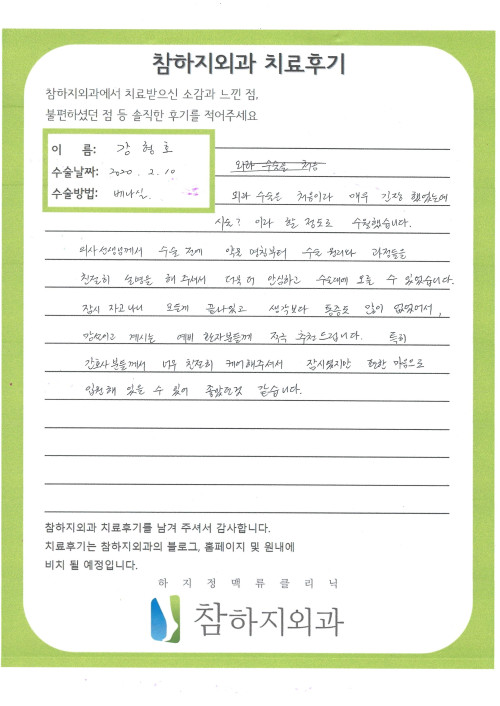 참하지외과 치료후기
참하지외과에서 치료받으신 소감과 느낀 점,
불편하셨던 점 등 솔직한 후기를 적어주세요
이 름: 강형호
수술날짜: 2020. 2. 10
수술방법: 베나실.
외과 수술은 처음
외과 수술은 처음이라 매우 긴장 했었는데
시술? 이라 할 정도로 수월했습니다.
의사선생님께서 수술 전에 약물 부터 수술 원리와 과정들을
친절히 설명을 해 주셔서 더욱 더 안심하고 수술대에 오를 수 있었습니다.
잠시 자고 나니 모든게 끝나있고 생각보다 통증도 많이 없었어서,
망설이고 계시는 예비 환자분들께 적극 추천드립니다. 특히
간호사분들께서 너무 친절히 케어해주셔서 잠시였지만 편한 마음으로
입원해 있을 수 있어 좋았던것 같습니다.
참하지외과 치료후기를 남겨 주셔서 감사합니다.
치료후기는 참하지외과의 블로그, 홈페이지 및 원내에
비치 될 예정입니다.
하지정맥류클리닉
참하지외과